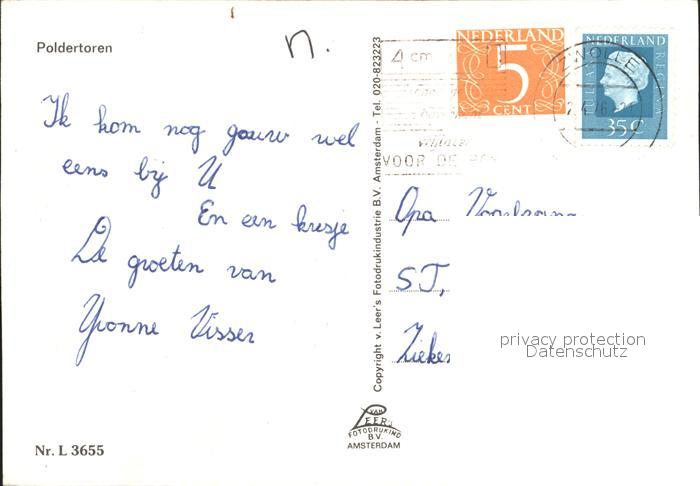 Poldertoren
n.
Ik kom nog gauw wel
eens bij U
En een kusje
De groeten van
Yvonne Visser
Nr. L 3655
Copyright v. Leer's Fotodrukindustrie B.V. Amsterdam - Tel. 020-823223
VAN
LEER's
FOTODRUKIND
B.V.
AMSTERDAM
4 cm
VOOR DE
NEDERLAND
5
CENT
NEDERLAND
JULIANA REGINA
35 c
ZWOLLE
Opa
ST,
Zieken
privacy protection
Datenschutz